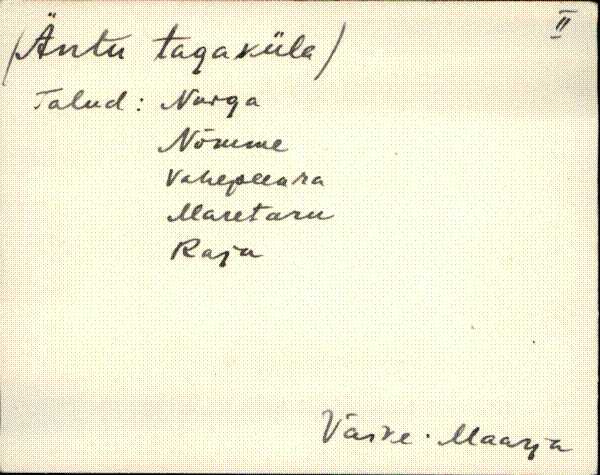 II
(Äntu tagaküla)
Talud: Nurga
Nõmme
Vahepeara
Maretaru
Raja
Väike-Maarja